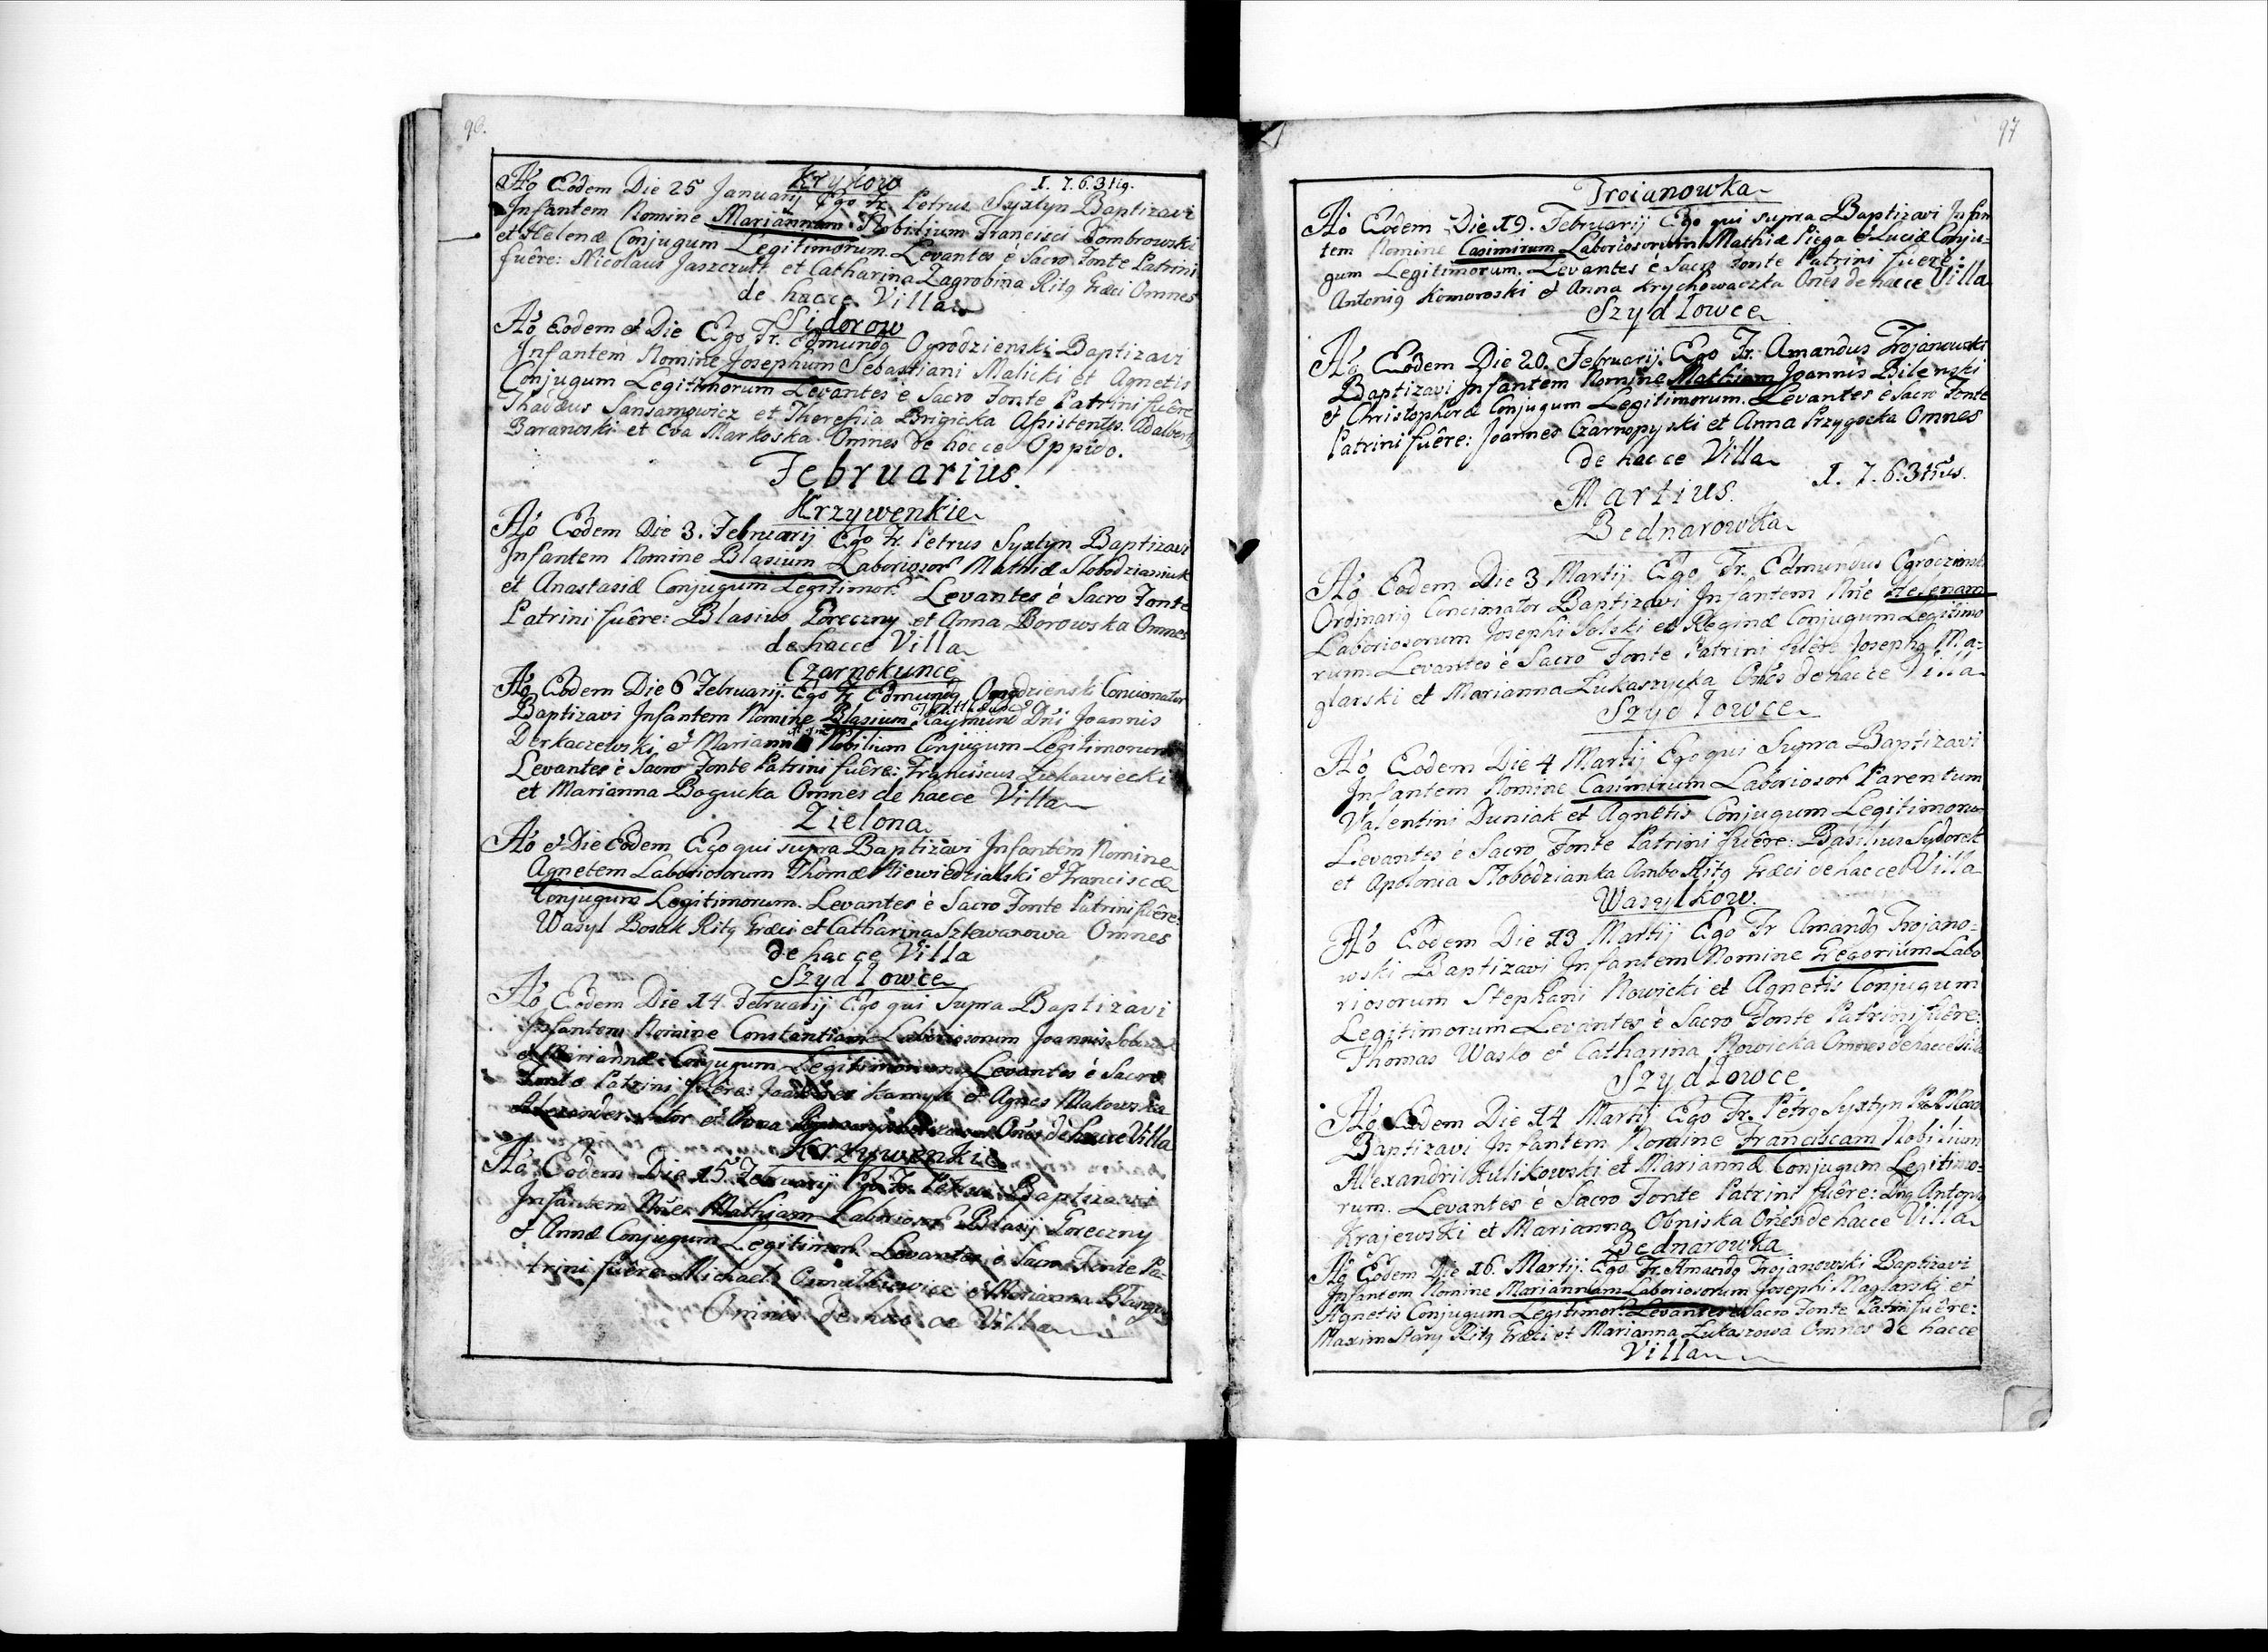 96.
Krzykow
1. 7. 6. 3tig.
Aō Eodem Die 25 Januarij Ego Fr. Petrus Syxtyn Baptizavi
Infantem Nomine Mariannam Nobilium Francisci Dombrowski
et Helenæ Conjugum Legitimorum. Levantes è Sacro Fonte Patrini
fuêre: Nicolaus Jaszczult et Catharina Zagrobina Ritq Græci Omnes
de hacce Villa
Sidorow
Aō Eodem et Die Ego Fr. Edmundq Ogrodzienski Baptizavi
Infantem Nomine Josephum Sebastiani Malicki et Agnetis
Conjugum Legitimorum Levantes è Sacro Fonte Patrini fuêre
Thadæus Sansamowicz et Theresiia Brigicka Assistentes Adalbertq
Baranoski et Eva Markoska Omnes de hocce Oppido.
Februarius.
Krzywenkie
Aō Eodem Die 3. Februarij Ego Fr. Petrus Syxtyn Baptizavi
Infantem Nomine Blasium Laboriosor Mathiæ Slobodzianiuk
et Anastasiæ Conjugum Legitimor. Levantes è Sacro Fonte
Patrini fuêre: Blasius Goreczny et Anna Borowska Omnes
de hacce Villa
Czarnokunce
Aō Eodem Die 6 Februarij. Ego Fr Edmundq Ogrodzienski Concionator
Baptizavi Infantem Nomine Blasium Raymund Dni Joannis
Derkaczewski et Mariannæ Nobilium Conjugum Legitimorum
Levantes è Sacro Fonte Patrini fuêre: Franciscus Zukawiecki
et Marianna Bogucka Omnes de hacce Villa
Zielona
Aō et Die Eodem Ego qui supra Baptizavi Infantem Nomine
Agnetem Laboriosorum Thomæ Niewiedzialski et Franciscæ
Conjugum Legitimorum. Levantes è Sacro Fonte Patrini fuêre:
Wasyl Bosak Ritq Græci et Catharina Szlewarowa Omnes
de hacce Villa
Szydlowce
Aō Eodem Die 14 Februarij Ego qui Supra Baptizavi
Infantem Nomine Constantiam Laboriosorum Joannis
et Mariannæ Conjugum Legitimorum Levantes è Sacro
Fonte Patrini fuêre: Joannes Kamyk et Agnes Makowska
Alexander et Anna Ones de hacce Villa
Krzywenkie
Aō Eodem Die 15 Februarij Ego Fr. Petrus Baptizavi
Infantem Nne Mathiam Laboriosor Blasij Goreczny
et Annæ Conjugum Legitimor. Levantes è Sacro Fonte Pa-
trini fuêre Michael et Marianna
Omnes de hac ce Villa
97
Troianowka
Aō Eodem Die 19. Februarij Ego qui supra Baptizavi Infan
tem Nomine Casimirum Laboriosorum Mathiæ Piega et Luciæ Conju=
gum Legitimorum. Levantes è Sacro Fonte Patrini fuere:
Antoniq Komoroski et Anna Krychowaczka Ones de hacce Villa
Szydlowce
Aō Eodem Die 20. Februarij. Ego Fr. Amandus Trojanowski
Baptizavi Infantem Nomine Mathiam Joannis Bilenski
et Christophoræ Conjugum Legitimorum. Levantes è Sacro Fonte
Patrini fuêre: Joannes Czarnopyski et Anna Przygocka Omnes
de hacce Villa
1. 7. 6. 3tius.
Martius.
Bednarowka
Aō Eodem Die 3 Martij Ego Fr. Edmundus Ogrodzienski
Ordinariq Concionator Baptizavi Infantem Nne Helenam
Laboriosorum Josephi Solski et Reginæ Conjugum Legitimo
rum Levantes è Sacro Fonte Patrini fuêre Josephq Ma=
glarski et Marianna Lukaszycka Ones de hacce Villa
Szydlowce
Aō Eodem Die 4 Martij Ego qui Supra Baptizavi
Infantem Nomine Casimirum Laboriosor Parentum
Valentini Duniak et Agnetis Conjugum Legitimoru-
Levantes è Sacro Fonte Patrini fuêre: Basilius Sydorek
et Apolonia Slobodzianka Ambo Ritq Græci de hacce Villa
Wasylkow.
Aō Eodem Die 13 Martij Ego Fr Amandq Trojano=
wski Baptizavi Infantem Nomine Gregorium Labo
riosorum Stephani Nowicki et Agnetis Conjugum
Legitimorum Levantes è Sacro Fonte Patrini fuêre:
Thomas Wasko et Catharina Nowicka Omnes de hacce Villa
Szydlowce.
Aō Eodem Die 14 Martij Ego Fr. Petrq Syxtyn
Baptizavi Infantem Nomine Franciscam Nobilium
Alexandri Kulikowski et Mariannæ Conjugum Legitimo=
rum. Levantes è Sacro Fonte Patrini fuêre: Dnq Antoniq
Krajewski et Marianna Obniska Ones de hacce Villa
Bednarowka
Aō Eodem Die 16. Martij. Ego Fr. Amandq Trojanowski Baptizavi
Infantem Nomine Mariannam Laboriosorum Josephi Maglarski et
Agnetis Conjugum Legitimor. Levantes è Sacro Fonte Patrini fuêre:
Maxim Stary Ritq Græci et Marianna Lukaszowa Omnes de hacce
Villa